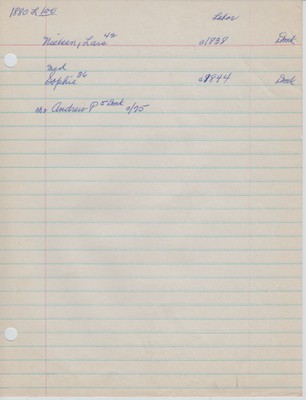 1880 L 100
Labor
Nielsen, Lars 42 c1838 Denk
Sophie 36 c1844 Denk
Andrew P 5 Denk c/75